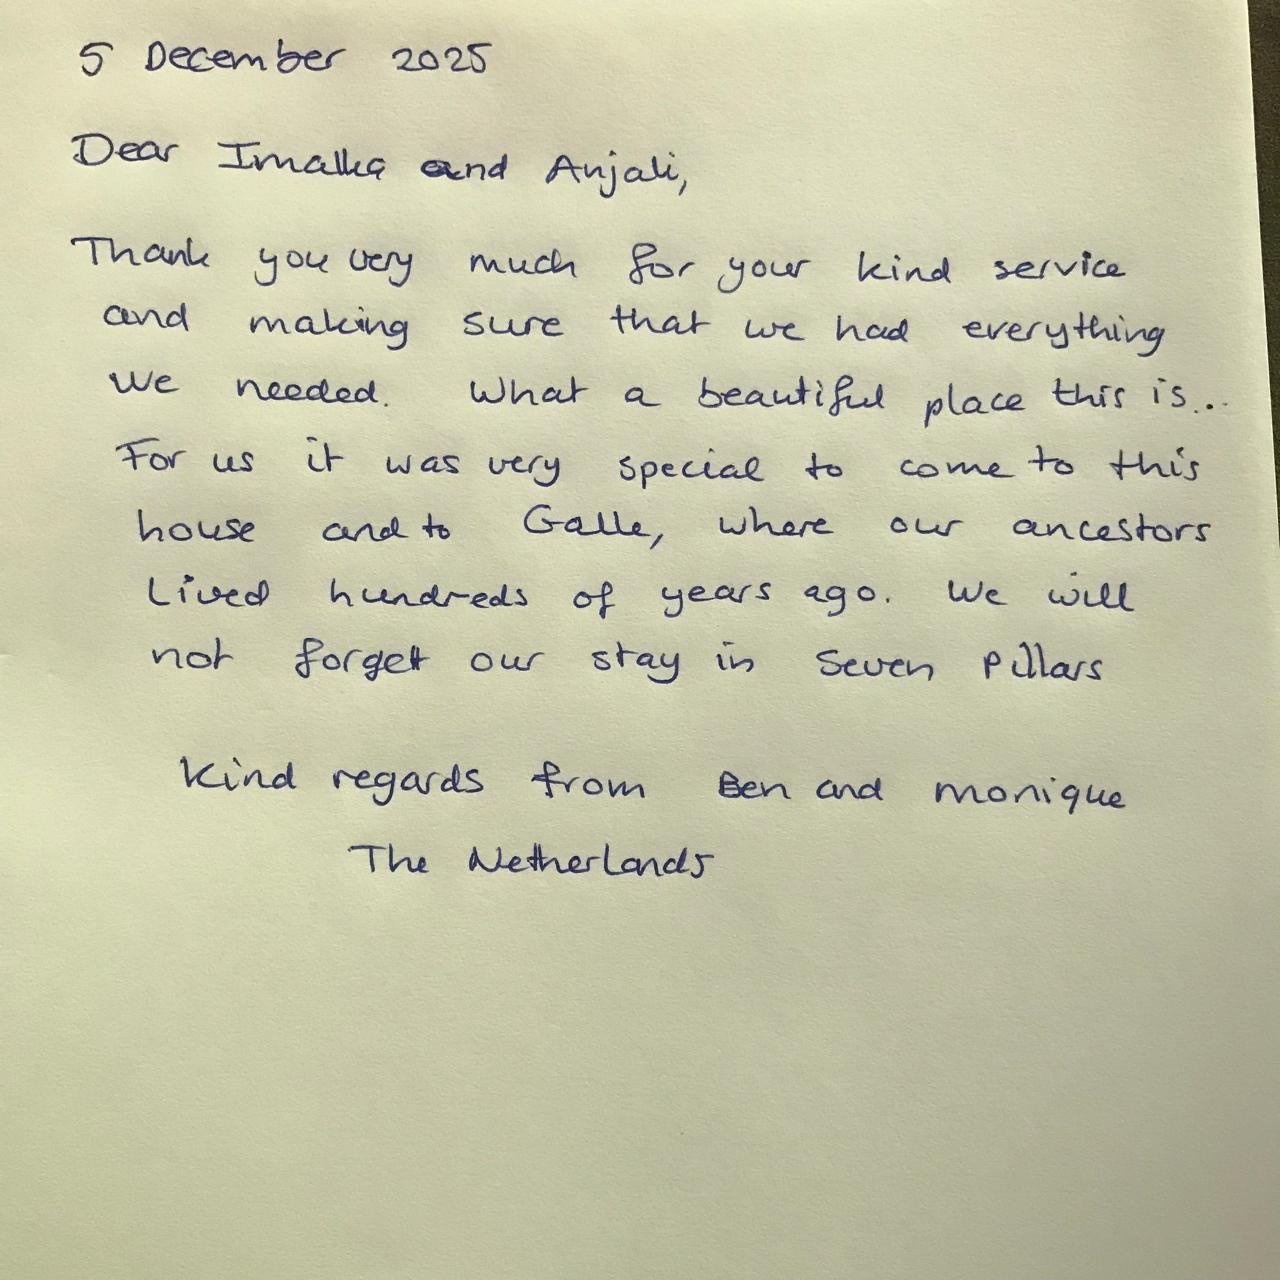 5 December 2025
Dear Imalka and Anjali,
Thank you very much for your kind service
and making sure that we had everything
we needed. What a beautiful place this is...
For us it was very special to come to this
house and to Galle, where our ancestors
Lived hundreds of years ago. We will
not forget our stay in Seven Pillars
Kind regards from Ben and monique
The Netherlands